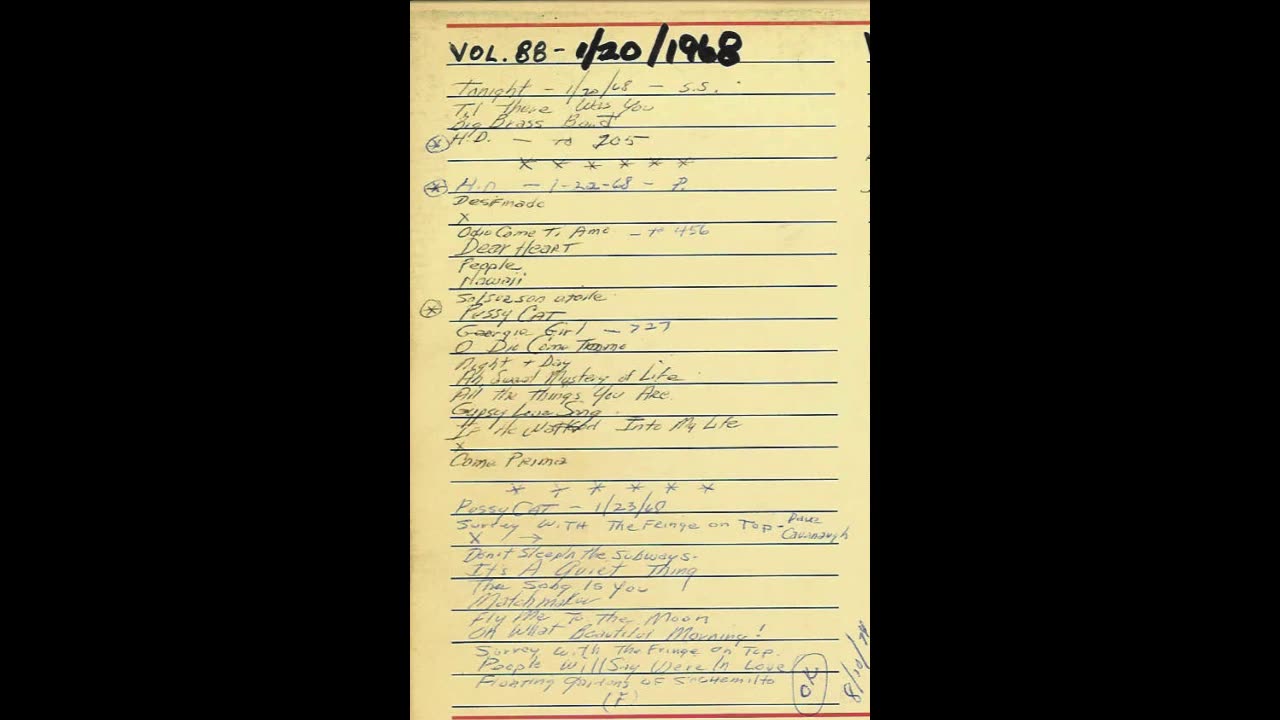 VOL. 88 - 1/20/1968
Tonight - 1/20/68 - S.S.
Til There Was You
Big Brass Band
* H.D. - to 205
* * * * * *
* H.D. - 1-22-68 - P.
Desifinado
X
Odio Come Ti Amo - to 456
Dear Heart
People
Hawaii
* Pussy CAT
Georgia Girl - 727
O Dio Come Tiamo
Night + Day
Ah, Sweet Mystery of Life
All the Things You Are.
Gypsy Love Song.
If He Walked Into My Life
X
Come Prima
* * * * * *
Pussy CAT - 1/23/68
Surrey With The Fringe on Top - Dave Cavanaugh
X →
Don't Sleep In the Subways.
It's A Quiet Thing
The Song Is You
Matchmaker
Fly Me To The Moon
Oh What Beautiful Morning!
Surrey with The Fringe on Top.
People Will Say We're In Love
Floating Gardens of
OK
8/10/